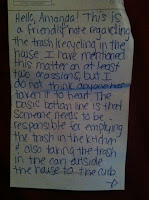 Hello, Amanda! This is
a friendly note regarding
the trash/recycling in the
house. I have mentioned
this matter on at least
two occasions, but I
do not think anyone has
taken it to heart. The
basic bottom line is that
someone needs to be
responsible for emptying
the trash in the kitchen
& also taking the trash
in the can outside
the house to the curb